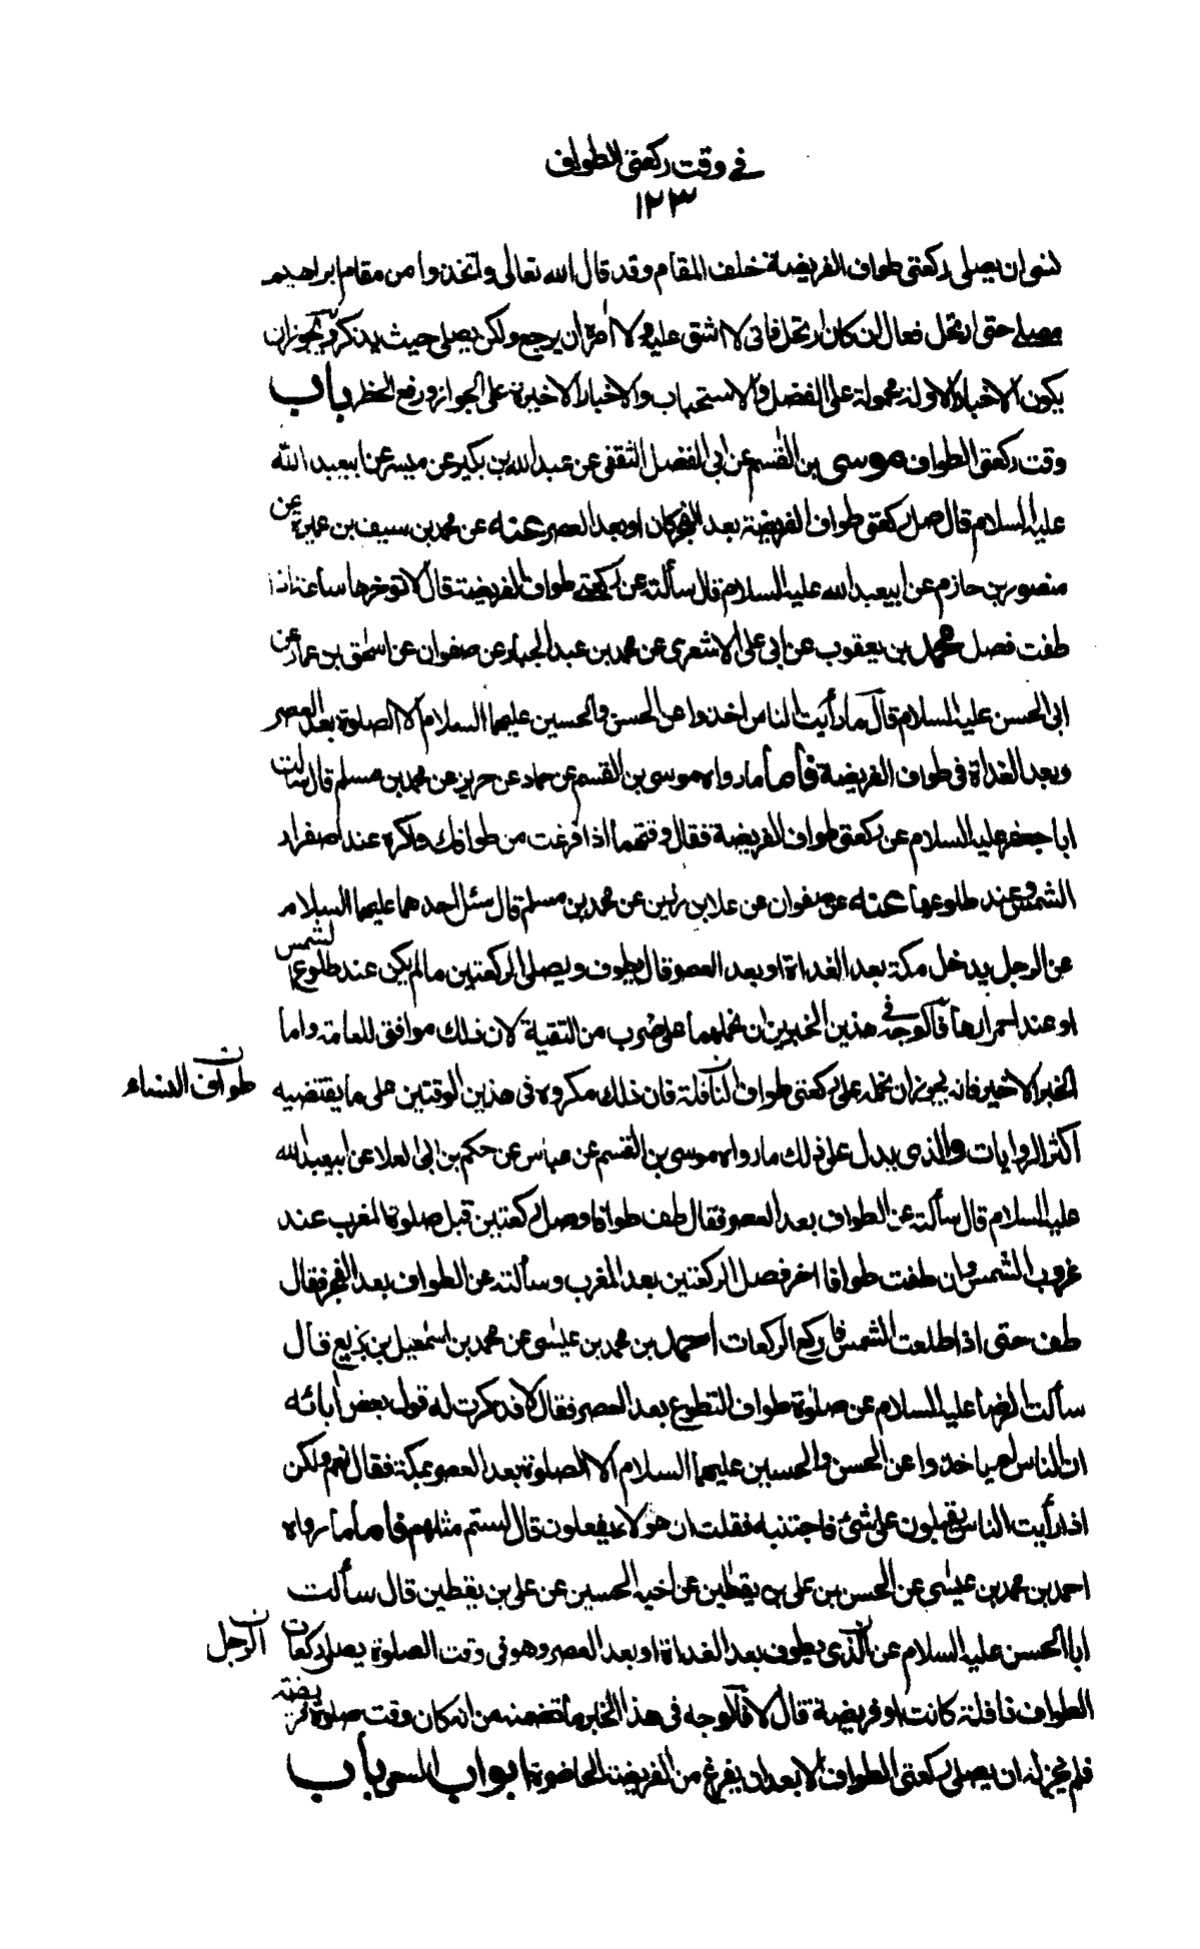 في وقت ركعتي الطواف
١٢٣
نسي ان يصلي ركعتي طواف الفريضة خلف المقام وقد قال الله تعالى واتخذوا من مقام ابراهيم
مصلى حتى ارتحل فقال ان كان ارتحل فاني لا اشق عليه ولا امره ان يرجع ولكن يصلي حيث يذكر ويجوز ان
يكون الاخبار الاولة محمولة على الفضل والاستحباب والاخبار الاخيرة على الجواز ورفع الحظر باب
وقت ركعتي الطواف موسى بن القسم عن ابي الفضل الثقفي عن عبد الله بن بكير عن ميسر عن ابيعبد الله
عليه السلام قال صل ركعتي طواف الفريضة بعد الفجر كان او بعد العصر عنه عن محمد بن سيف بن عميرة عن
منصور بن حازم عن ابيعبد الله عليه السلام قال سألته عن ركعتي طواف الفريضة قال لا توخرها ساعة اذا
طفت فصل محمد بن يعقوب عن ابي علي الاشعري عن محمد بن عبد الجبار عن صفوان عن اسحق بن عمار عن
ابي الحسن عليه السلام قال ما رأيت الناس اخذوا عن الحسن والحسين عليهما السلام الا الصلوة بعد العصر
وبعد الغداة في طواف الفريضة فأما ما رواه موسى بن القسم عن حماد عن حريز عن محمد بن مسلم قال سالت
ابا جعفر عليه السلام عن ركعتي طواف الفريضة فقال وقتهما اذا فرغت من طوافك واكره عند اصفرار
الشمس وعند طلوعها عنه عن صفوان عن علا بن رزين عن محمد بن مسلم قال سئل احدهما عليهما السلام
عن الرجل يدخل مكة بعد الغداة او بعد العصر قال يطوف ويصلي الركعتين ما لم يكن عند طلوع الشمس
او عند احمرارها فالوجه في هذين الخبرين ان نحملهما على ضرب من التقية لان ذلك موافق للعامة واما
الخبر الاخير فانه يجوز ان نحمله على ركعتي طواف النافلة فان ذلك مكروه في هذين الوقتين على ما يقتضيه
طواف النساء ن
اكثر الروايات والذي يدل على ذلك ما رواه موسى بن القسم عن عباس عن حكم بن ابي العلا عن ابيعبد الله
عليه السلام قال سألته عن الطواف بعد العصر فقال طف طوافا وصل ركعتين قبل صلوة المغرب عند
غروب الشمس وان طفت طوافا اخر فصل الركعتين بعد المغرب وسألته عن الطواف بعد الفجر فقال
طف حتى اذا طلعت الشمس فاركع الركعات احمد بن محمد بن عيسى عن محمد بن اسمعيل بن بزيع قال
سألت الرضا عليه السلام عن صلوة طواف التطوع بعد العصر فقال لا فذكرت له قول بعض ابائه
ان الناس لم ياخذوا عن الحسن والحسين عليهما السلام الا الصلوة بعد العصر بمكة فقال نعم ولكن
اذا رأيت الناس يقبلون على شئ فاجتنبه فقلت ان هولاء يفعلون قال لستم مثلهم فاما ما رواه
احمد بن محمد بن عيسى عن الحسن بن علي بن يقطين عن اخيه الحسين عن علي بن يقطين قال سألت
ابا الحسن عليه السلام عن الذي يطوف بعد الغداة او بعد العصر وهو في وقت الصلوة يصلي ركعات
الرجل ن
الطواف نافلة كانت او فريضة قال لا فالوجه في هذا الخبر ما تضمنه من انه كان وقت صلوة فريضة
فلم يجز له ان يصلي ركعتي الطواف الا بعد ان يفرغ من الفريضة الحاضرة ابواب السعي باب